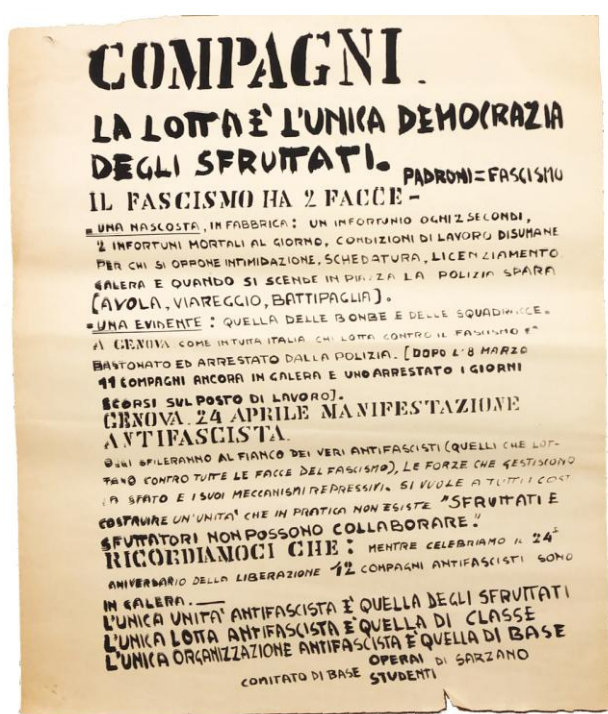 COMPAGNI.
LA LOTTA È L'UNICA DEMOCRAZIA
DEGLI SFRUTTATI.
PADRONI=FASCISMO
IL FASCISMO HA 2 FACCE-
- UNA NASCOSTA, IN FABBRICA: UN INFORTUNIO OGNI 2 SECONDI,
2 INFORTUNI MORTALI AL GIORNO, CONDIZIONI DI LAVORO DISUMANE
PER CHI SI OPPONE INTIMIDAZIONE, SCHEDATURA, LICENZIAMENTO
GALERA E QUANDO SI SCENDE IN PIAZZA LA POLIZIA SPARA
[AVOLA, VIAREGGIO, BATTIPAGLIA].
- UNA EVIDENTE: QUELLA DELLE BOMBE E DELLE SQUADRACCE.
A GENOVA COME IN TUTTA ITALIA CHI LOTTA CONTRO IL FASCISMO E'
BASTONATO ED ARRESTATO DALLA POLIZIA. [DOPO L'8 MARZO
11 COMPAGNI ANCORA IN GALERA E UNO ARRESTATO I GIORNI
SCORSI SUL POSTO DI LAVORO].
GENOVA. 24 APRILE MANIFESTAZIONE
ANTIFASCISTA.
OGGI SFILERANNO AL FIANCO DEI VERI ANTIFASCISTI (QUELLI CHE LOT-
TANO CONTRO TUTTE LE FACCE DEL FASCISMO), LE FORZE CHE GESTISCONO
LO STATO E I SUOI MECCANISMI REPRESSIVI. SI VUOLE A TUTTI I COSTI
COSTRUIRE UN'UNITA' CHE IN PRATICA NON ESISTE "SFRUTTATI E
SFUTTATORI NON POSSONO COLLABORARE."
RICORDIAMOCI CHE: MENTRE CELEBRIAMO IL 24°
ANIVERSARIO DELLA LIBERAZIONE 12 COMPAGNI ANTIFASCISTI SONO
IN GALERA.
L'UNICA UNITA' ANTIFASCISTA È QUELLA DEGLI SFRUTTATI
L'UNICA LOTTA ANTIFASCISTA È QUELLA DI CLASSE
L'UNICA ORGANIZZAZIONE ANTIFASCISTA È QUELLA DI BASE
COMITATO DI BASE OPERAI DI SARZANO
STUDENTI